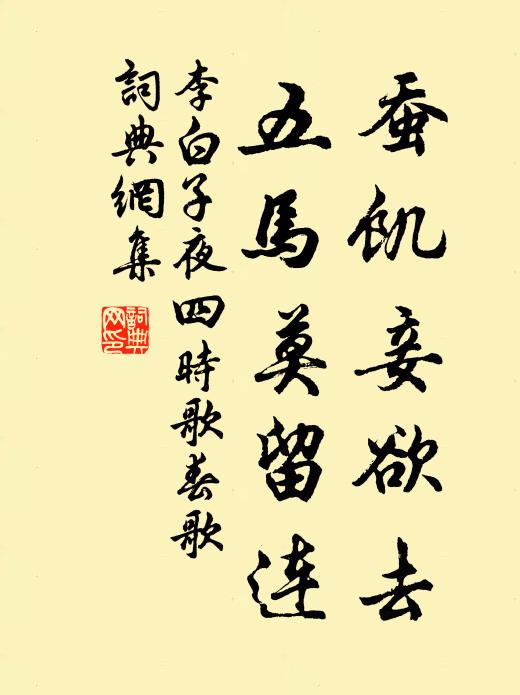 蚕飢妾欲去
五馬莫留連
李白子夜四時歌春歌
詞典網集
詞典
网印